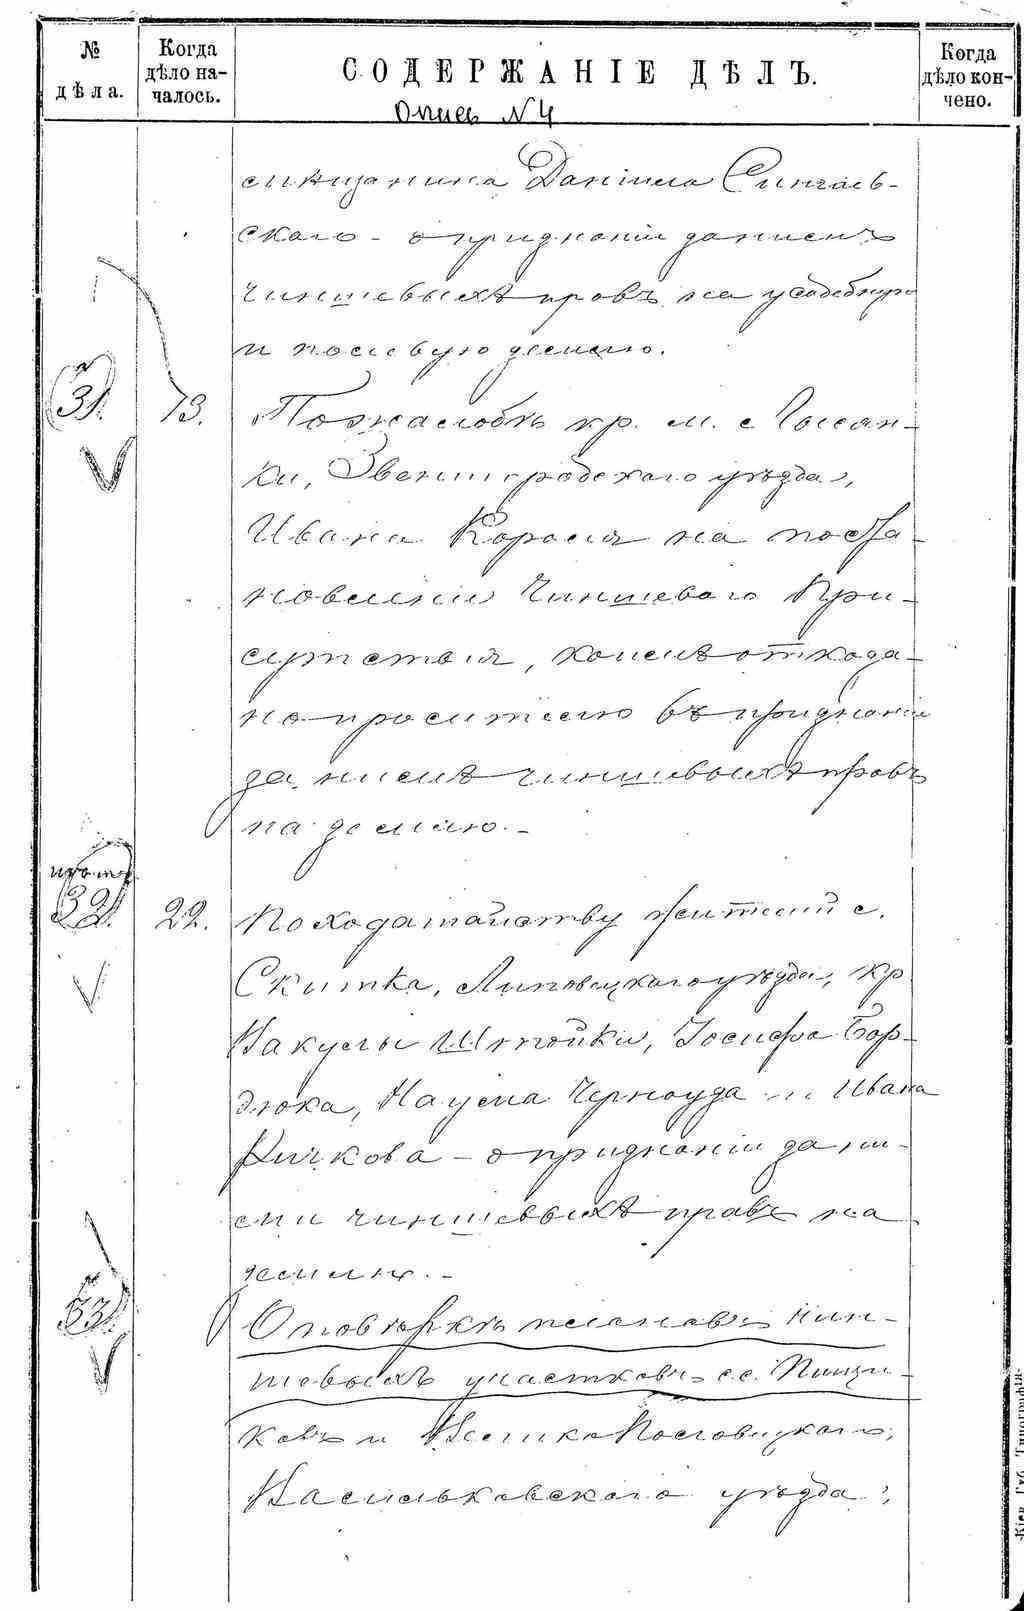 № дѣла.
Когда дѣло началось.
СОДЕРЖАНІЕ ДѢЛЪ.
Когда дѣло кончено.
Опись № 4
мѣщанина Даніила Сингаль-
скаго - о признаніи за нимъ
чиншевыхъ правъ на усадебную
и полевую землю.
31. 13. По жалобѣ кр. м. с Гусан-
ки, Звенигородскаго уѣзда,
Ивана Короля на поста-
новленіе Чиншеваго При-
сутствія, коимъ отказа-
но просителю въ признаніи
за нимъ чиншевыхъ правъ
на землю. -
32. 22. По ходатайству жителей с.
Скитка, Липовецкаго уѣзда, кр
Вакулы Штойки, Іосифа Бор-
дюка, Наума Черноуда и Ивана
Ричкова - о признаніи за ни-
ми чиншевыхъ правъ на
землю. -
33. О повѣркѣ плановъ чин-
шевыхъ участковъ с.с. Пинчи-
ковъ и Велико
Васильковскаго уѣзда,
Кіев. Губ. Типографія.